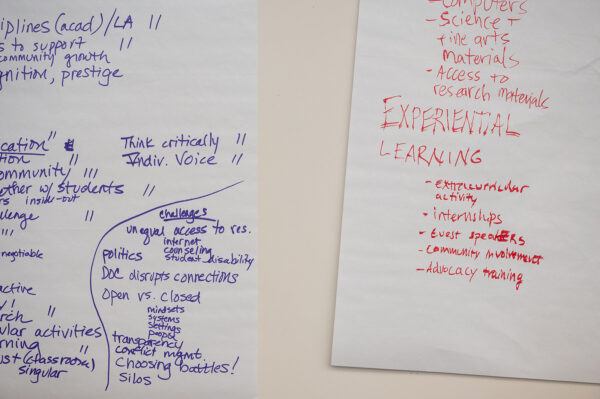 iplines (acad)/LA //
s to support //
community growth
gnition, prestige
ication"
tion "
ommunity / ///
ether w/ students //
rs inside-out
lenge //
"'
negotiable
active
y /
rch //
ular activities
rning //
ust (classroom)
singular
Think critically //
Indiv. Voice //
challenges
unequal access to res.
internet
counseling
student disability
politics
DOC disrupts connections
Open vs. closed
mindsets
systems
settings
people
transparency
conflict mgmt.
Choosing battles!
Silos
- Computers
- Science +
fine arts
materials
- Access to
research materials
EXPERIENTIAL
LEARNING
- extracurricular
activity
- internships
- Guest speakERs
- Community involvement
- Advocacy training